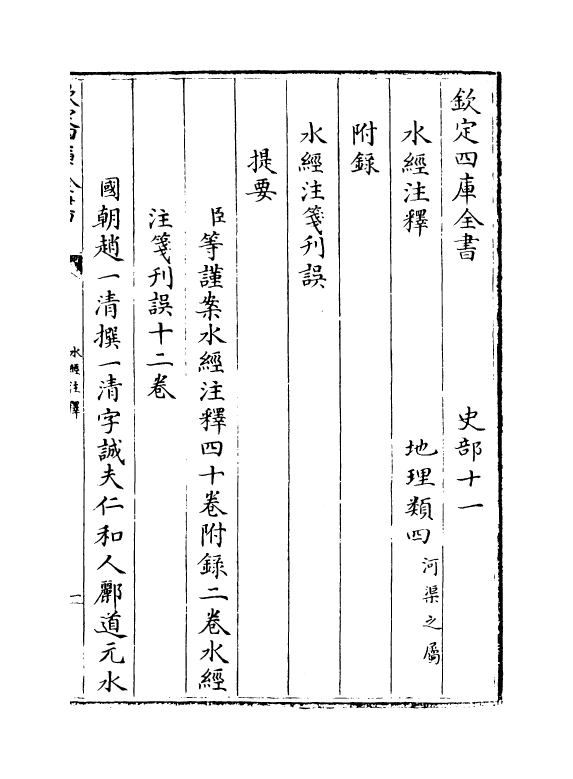 欽定四庫全書　史部十一
水經注釋　地理類四河渠之屬
附錄
水經注箋刋誤
提要
臣等謹案水經注釋四十卷附錄二卷水經
注箋刋誤十二卷
國朝趙一清撰一清字誠夫仁和人酈道元水
水經注釋